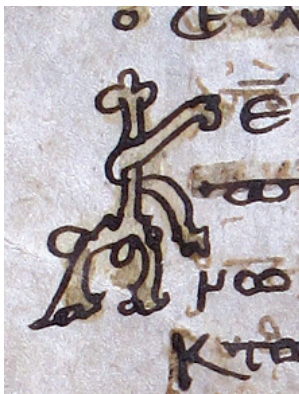 ο ευλ
κε̅
τω
μω
κτο